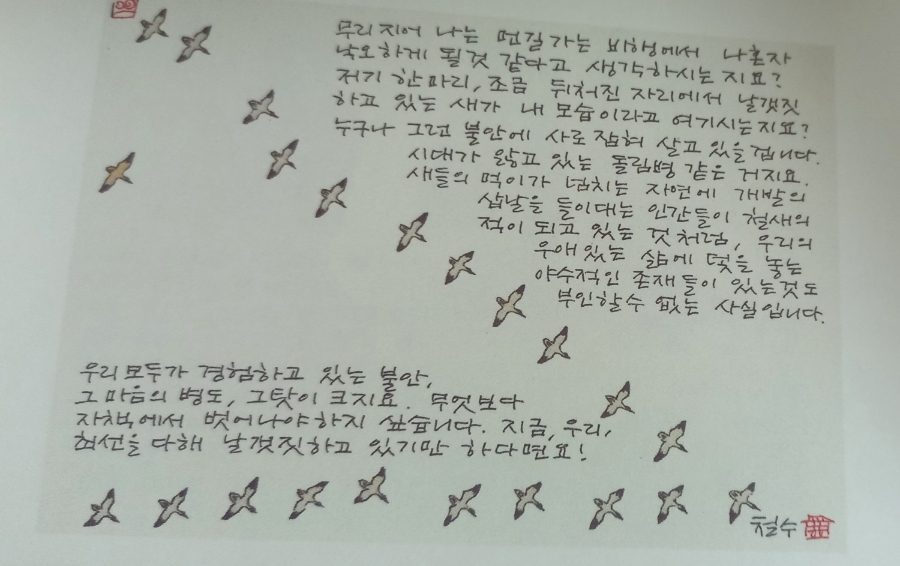 무리지어 나는 먼길가는 비행에서 나혼자
낙오하게 될것 같다고 생각하시는지요?
저기 한마리, 조금 뒤처진 자리에서 날갯짓
하고 있는 새가 내 모습이라고 여기시는지요?
누구나 그런 불안에 사로잡혀 살고 있을겁니다.
시대가 앓고 있는 돌림병 같은 거지요.
새들의 먹이가 넘치는 자연에 개발의
삽날을 들이대는 인간들이 철새의
적이 되고 있는 것처럼, 우리의
우애있는 삶에 덫을 놓는
야수적인 존재들이 있는것도
부인할수 없는 사실입니다.
우리모두가 경험하고 있는 불안,
그 마음의 병도, 그탓이 크지요. 무엇보다
자책에서 벗어나야하지 싶습니다. 지금, 우리,
최선을 다해 날갯짓하고 있기만 하다면요!
철수